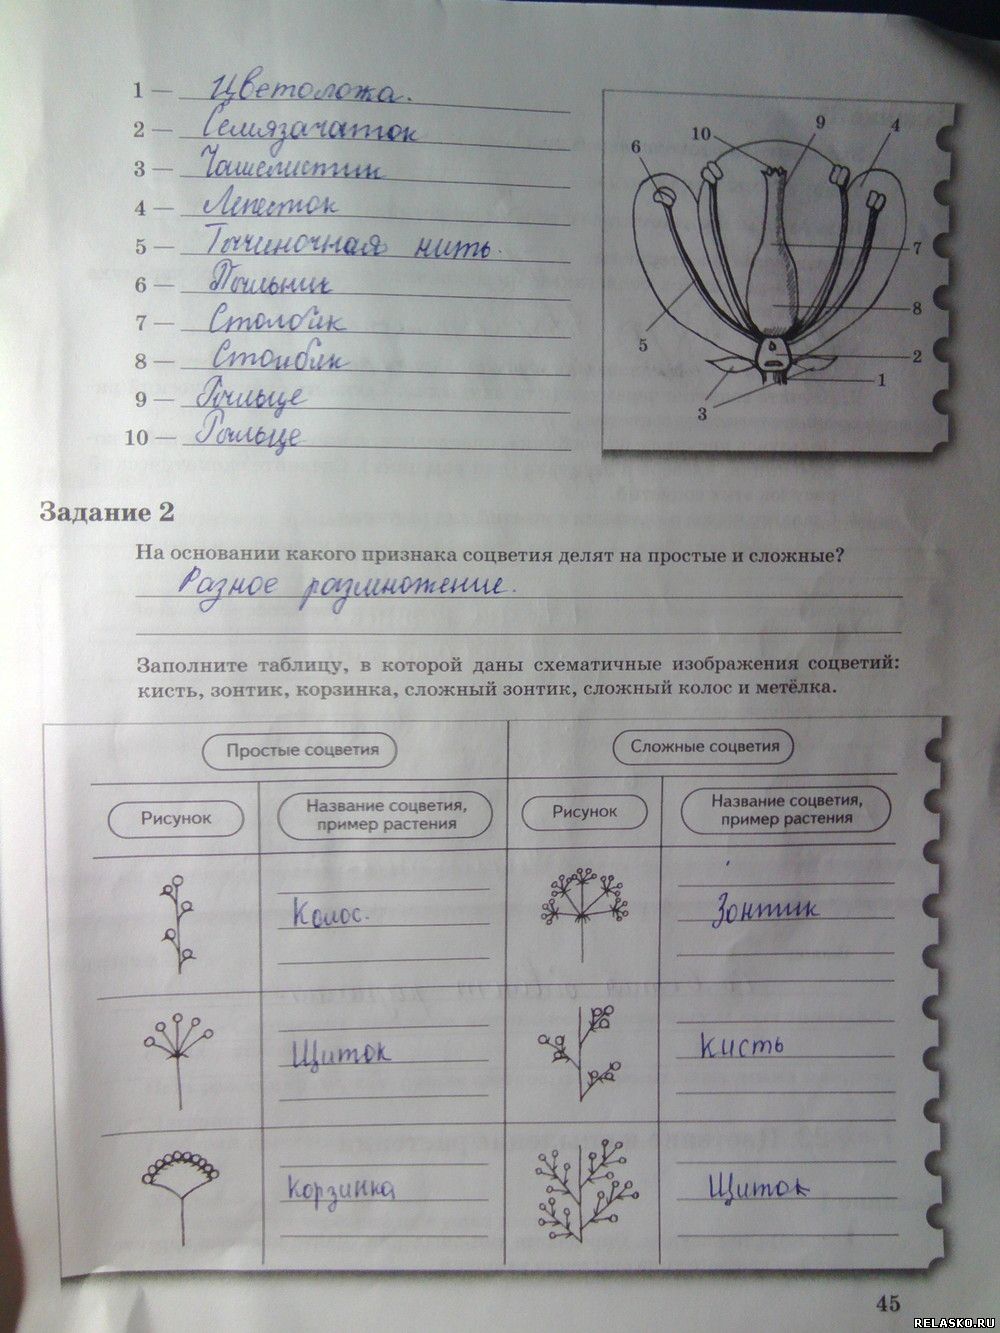 1 — Цветоложа.
2 — Семязачаток
3 — Чашелистик
4 — Лепесток
5 — Тычиночная нить.
6 — Пыльник
7 — Столбик
8 — Столбик
9 — Рыльце
10 — Рыльце
10
9
4
6
7
8
5
2
1
3
Задание 2
На основании какого признака соцветия делят на простые и сложные?
Разное размножение.
Заполните таблицу, в которой даны схематичные изображения соцветий:
кисть, зонтик, корзинка, сложный зонтик, сложный колос и метёлка.
Простые соцветия
Сложные соцветия
Рисунок
Название соцветия,
пример растения
Рисунок
Название соцветия,
пример растения
Колос.
Зонтик
Щиток
Кисть
Корзинка
Щиток
45
RELASKO.RU